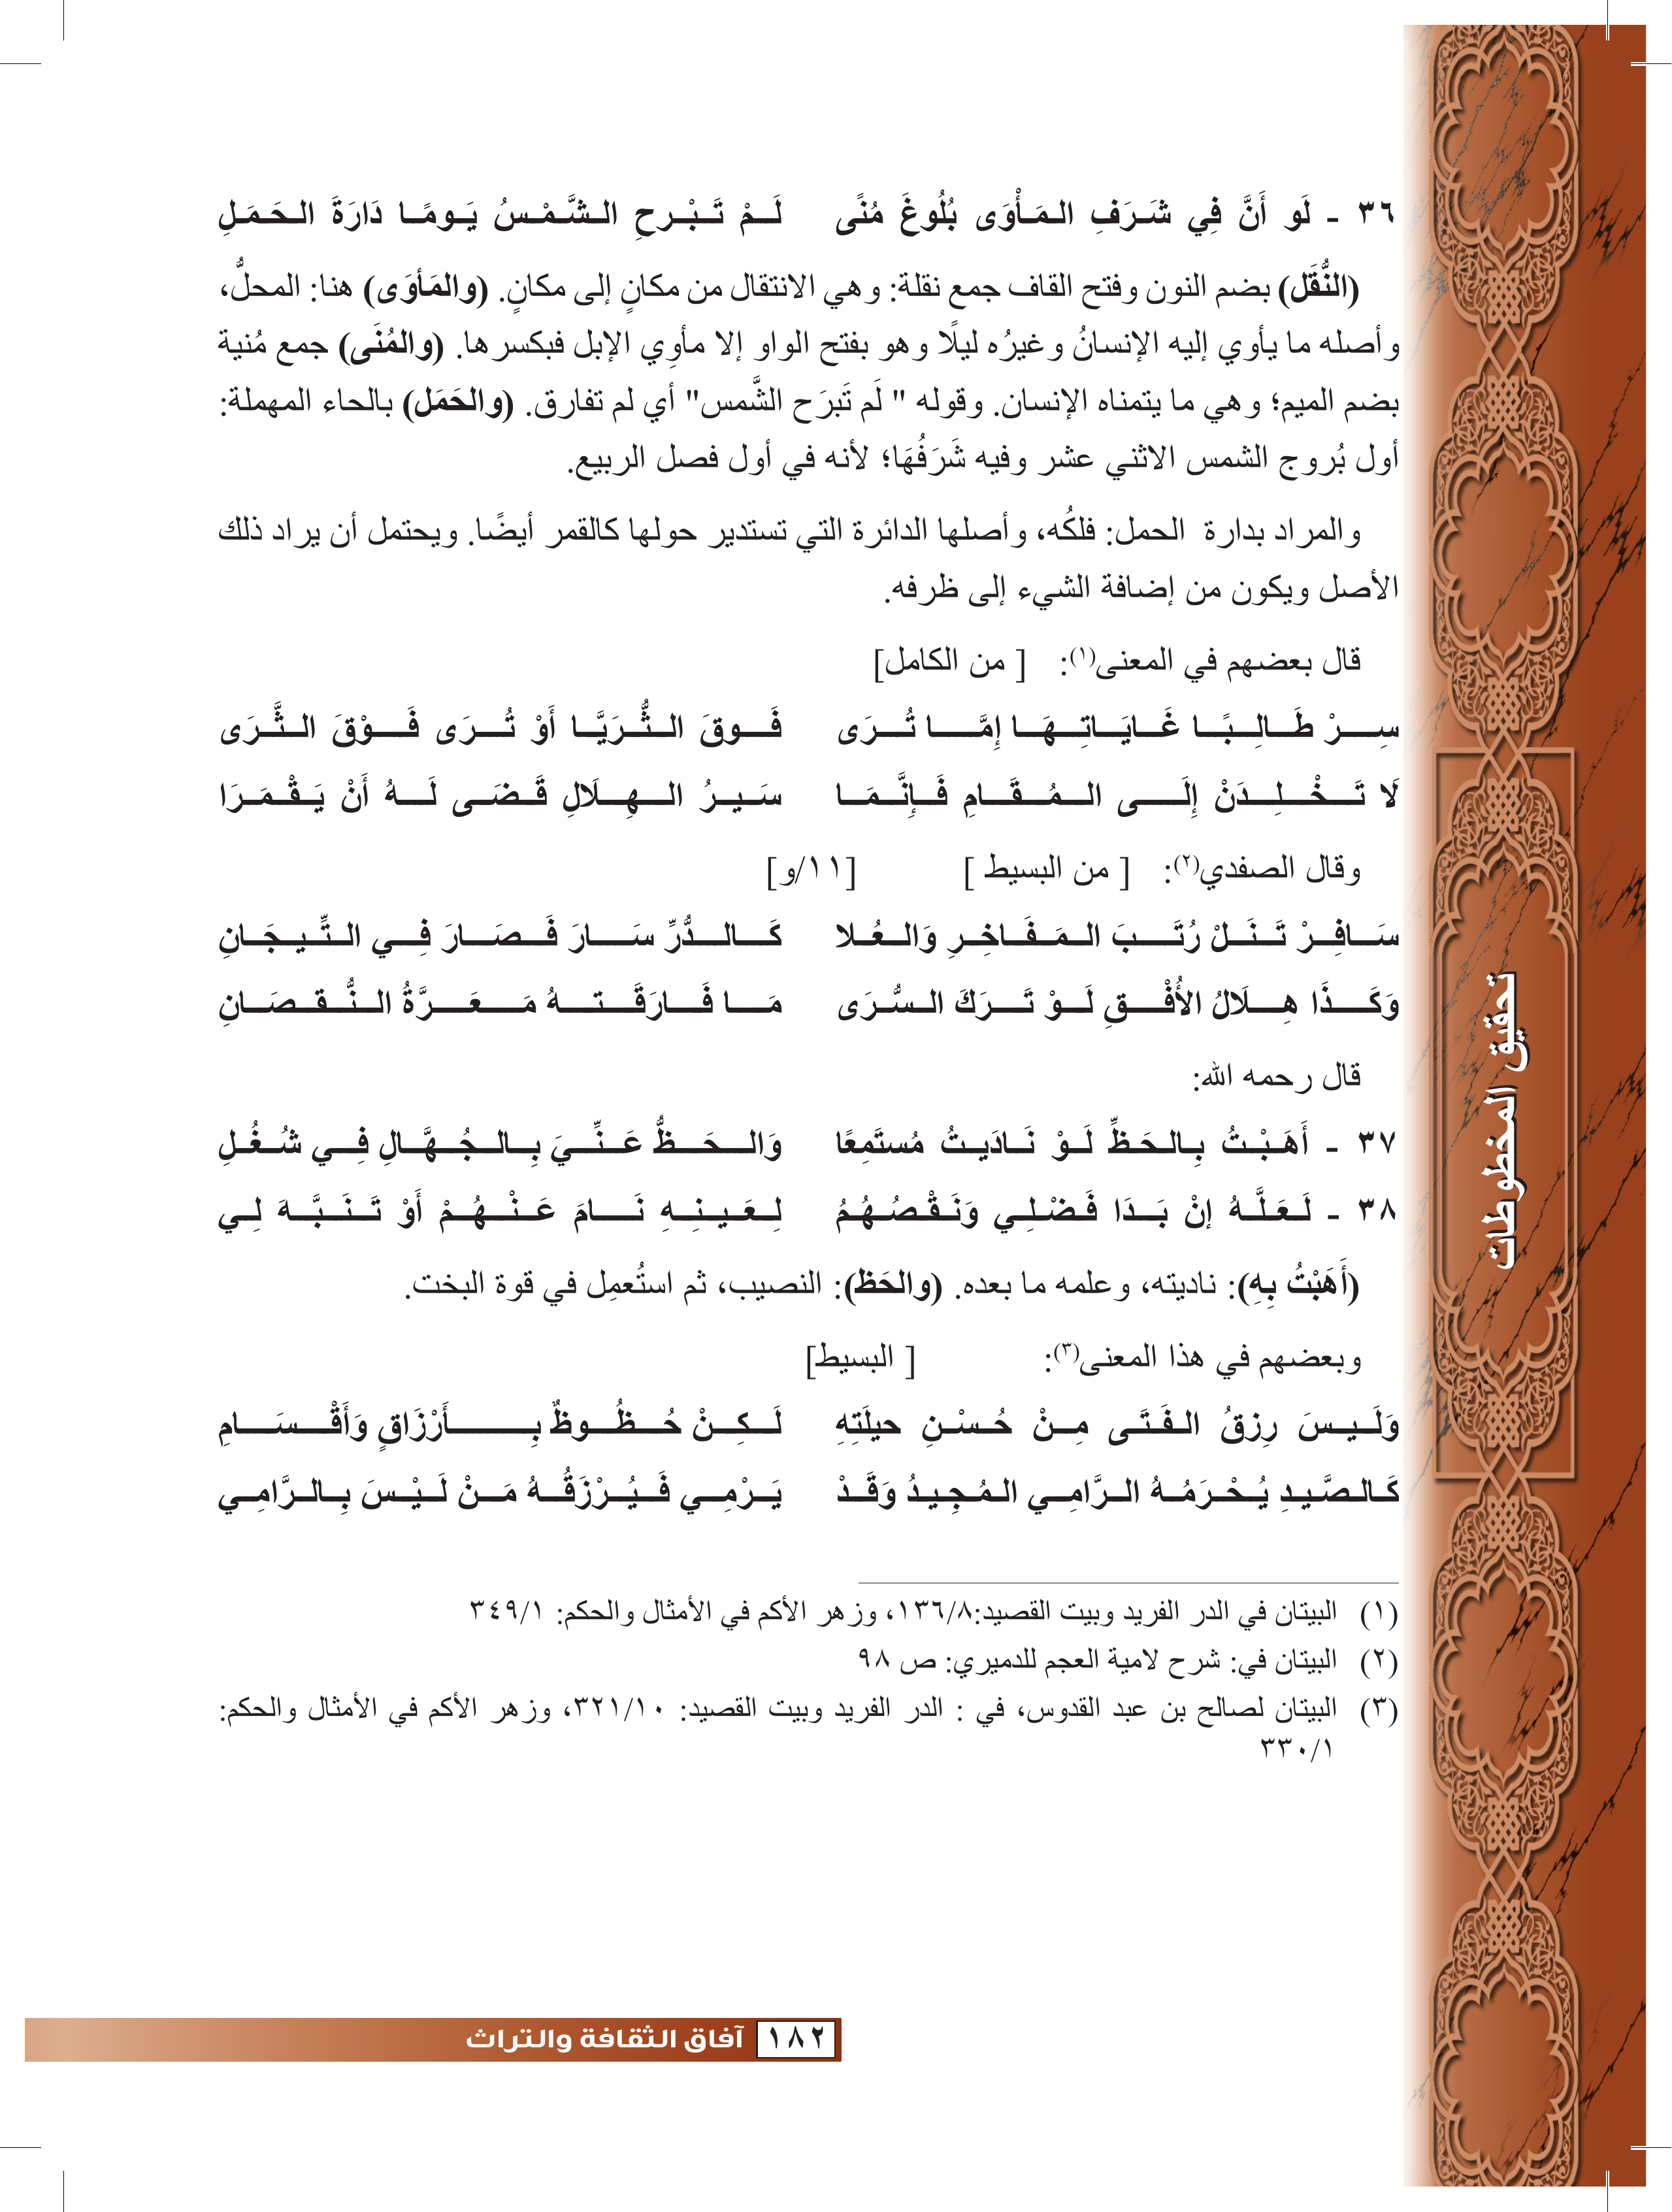 ٣٦ - لَو أَنَّ فِي شَرَفِ المَأْوَى بُلُوغَ مُنًى لَمْ تَبْرحِ الشَّمْسُ يَومًا دَارَةَ الحَمَلِ
(النُّقَل) بضم النون وفتح القاف جمع نقلة: وهي الانتقال من مكانٍ إلى مكانٍ. (والمَأوَى) هنا: المحلُّ،
وأصله ما يأوي إليه الإنسانُ وغيرُه ليلًا وهو بفتح الواو إلا مأوِي الإبل فبكسرها. (والمُنَى) جمع مُنية
بضم الميم؛ وهي ما يتمناه الإنسان. وقوله " لَم تَبرَح الشَّمس" أي لم تفارق. (والحَمَل) بالحاء المهملة:
أول بُروج الشمس الاثني عشر وفيه شَرَفُهَا؛ لأنه في أول فصل الربيع.
والمراد بدارة الحمل: فلكُه، وأصلها الدائرة التي تستدير حولها كالقمر أيضًا. ويحتمل أن يراد ذلك
الأصل ويكون من إضافة الشيء إلى ظرفه.
قال بعضهم في المعنى(١): [ من الكامل]
سِرْ طَالِبًا غَايَاتِهَا إِمَّا تُرَى فَوقَ الثُّرَيَّا أَوْ تُرَى فَوْقَ الثَّرَى
لَا تَخْلِدَنْ إِلَى المُقَامِ فَإِنَّمَا سَيرُ الهِلَالِ قَضَى لَهُ أَنْ يَقْمَرَا
وقال الصفدي(٢): [ من البسيط ] [١١/و]
سَافِرْ تَنَلْ رُتَبَ المَفَاخِرِ وَالعُلا كَالدُّرِّ سَارَ فَصَارَ فِي التِّيجَانِ
وَكَذَا هِلَالُ الأُفْقِ لَوْ تَرَكَ السُّرَى مَا فَارَقَتهُ مَعَرَّةُ النُّقصَانِ
قال رحمه الله:
٣٧ - أَهَبْتُ بِالحَظِّ لَوْ نَادَيتُ مُستَمِعًا وَالحَظُّ عَنِّيَ بِالجُهَّالِ فِي شُغُلِ
٣٨ - لَعَلَّهُ إنْ بَدَا فَضْلِي وَنَقْصُهُمُ لِعَينِهِ نَامَ عَنْهُمْ أَوْ تَنَبَّهَ لِي
(أَهَبْتُ بِهِ): ناديته، وعلمه ما بعده. (والحَظ): النصيب، ثم استُعمِل في قوة البخت.
وبعضهم في هذا المعنى(٣): [ البسيط]
وَلَيسَ رِزقُ الفَتَى مِنْ حُسْنِ حيلَتِهِ لَكِنْ حُظُوظٌ بِأَرْزَاقٍ وَأَقْسَامِ
كَالصَّيدِ يُحْرَمُهُ الرَّامِي المُجِيدُ وَقَدْ يَرْمِي فَيُرْزَقُهُ مَنْ لَيْسَ بِالرَّامِي
(١) البيتان في الدر الفريد وبيت القصيد:١٣٦/٨، وزهر الأكم في الأمثال والحكم: ٣٤٩/١
(٢) البيتان في: شرح لامية العجم للدميري: ص ٩٨
(٣) البيتان لصالح بن عبد القدوس، في : الدر الفريد وبيت القصيد: ٣٢١/١٠، وزهر الأكم في الأمثال والحكم:
٣٣٠/١
تحقيق المخطوطات
١٨٢ آفاق الثقافة والتراث